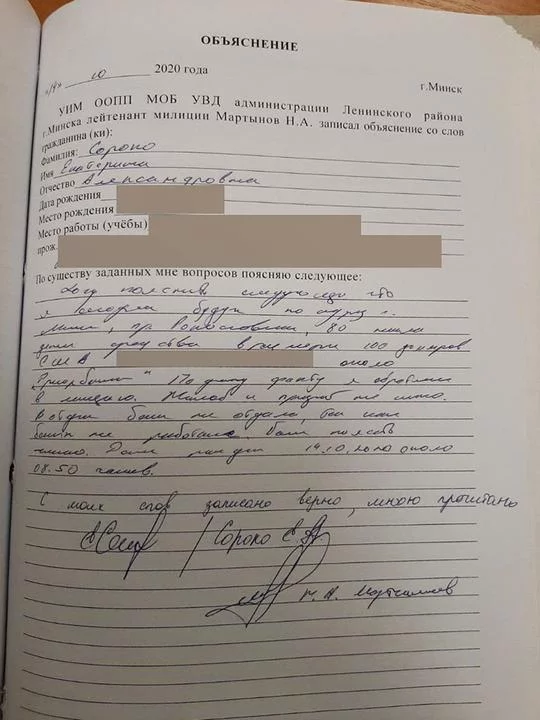 ОБЪЯСНЕНИЕ
"14" 10 2020 года
г.Минск
УИМ ООПП МОБ УВД администрации Ленинского района
г.Минска лейтенант милиции Мартынов Н.А. записал объяснение со слов
гражданина (ки):
Фамилия: Сороко
Имя Екатерина
Отчество Александровна
Дата рождения
Место рождения
Место работы (учёбы)
прож.
По существу заданных мне вопросов поясняю следующее:
Хочу пояснить следующее что
я сегодня будучи по адресу г.
Минск, пр. Рокоссовского, 80 нашла
ден средства в размере 100 долларов
США около
"Приорбанка" По данному факту я обратилась
в милицию. Жалоб и не имею.
В отдел банка не отдала, так как
банк не работал. пояснить
нечего. Деньги 14.10.2020 около
08.50 часов.
С моих слов записано верно, мною прочитано
Сороко Е.А
Н.А. Мартынов